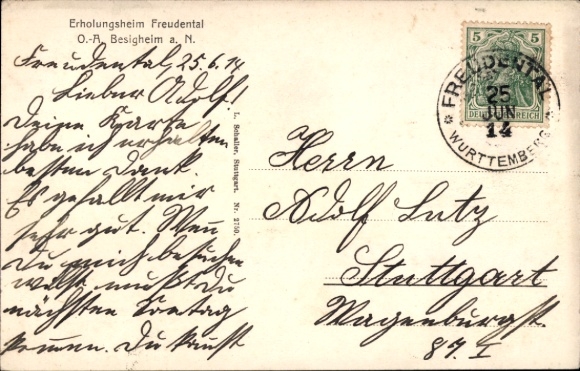 Erholungsheim Freudental
O.-A. Besigheim a. N.
Freudental, 25.6.14
Lieber Adolf!
Deine Karte
habe ich erhalten
besten Dank.
Es gefällt mir
sehr gut. Wenn
Du mich besuchen
willst mußt Du
nächsten Sontag
kommen. Du kannst
L. Schaller, Stuttgart. Nr. 2750.
5 5
DEUTSCHES REICH
FREUDENTAL
25
JUN
14
WÜRTTEMBERG
Herrn
Adolf Lutz
Stuttgart
Wagenburgst.
87. I